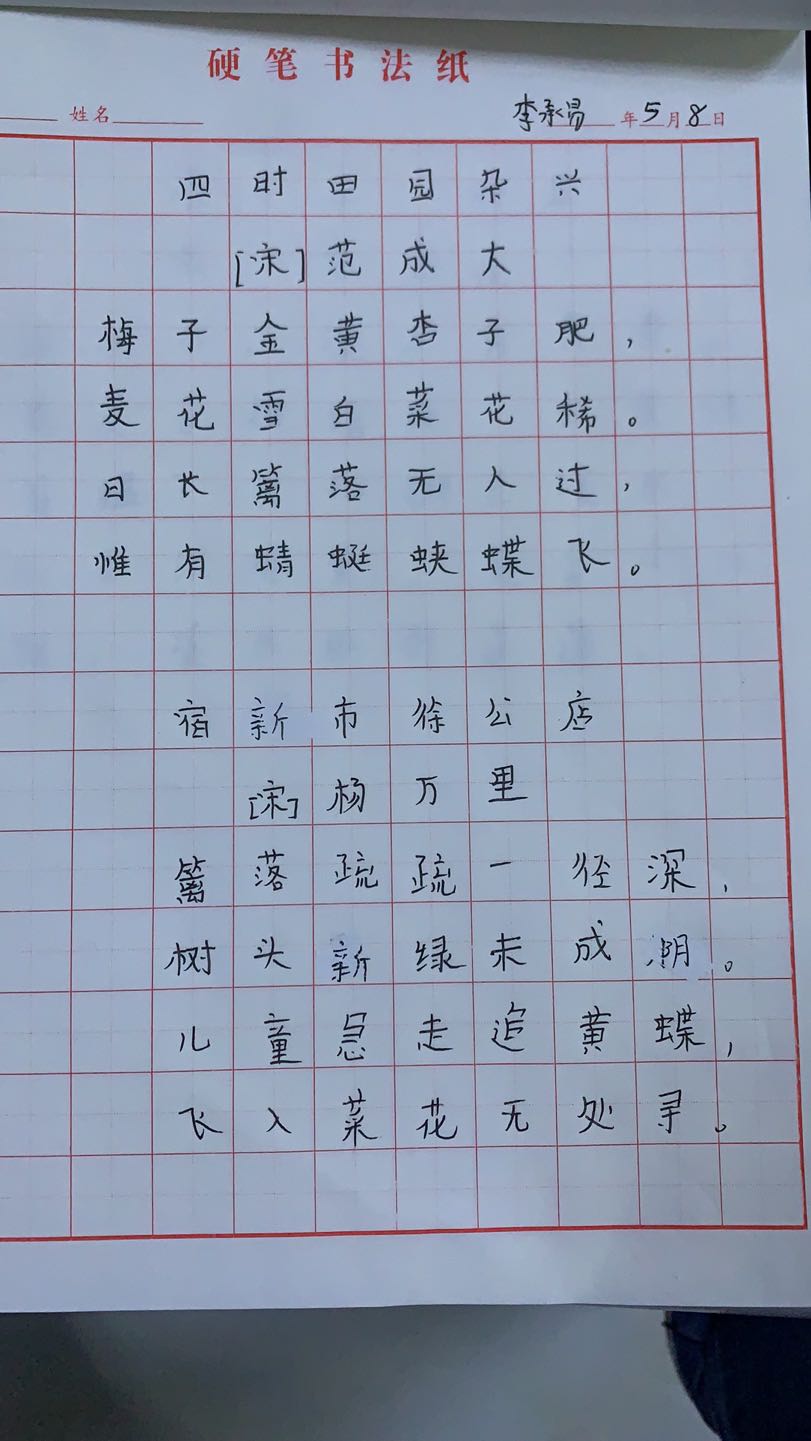 硬笔书法纸
姓名 李承昜 年5月8日
四时田园杂兴
[宋]范成大
梅子金黄杏子肥，
麦花雪白菜花稀。
日长篱落无人过，
惟有蜻蜓蛱蝶飞。
宿新市徐公店
[宋]杨万里
篱落疏疏一径深，
树头新绿未成阴。
儿童急走追黄蝶，
飞入菜花无处寻。